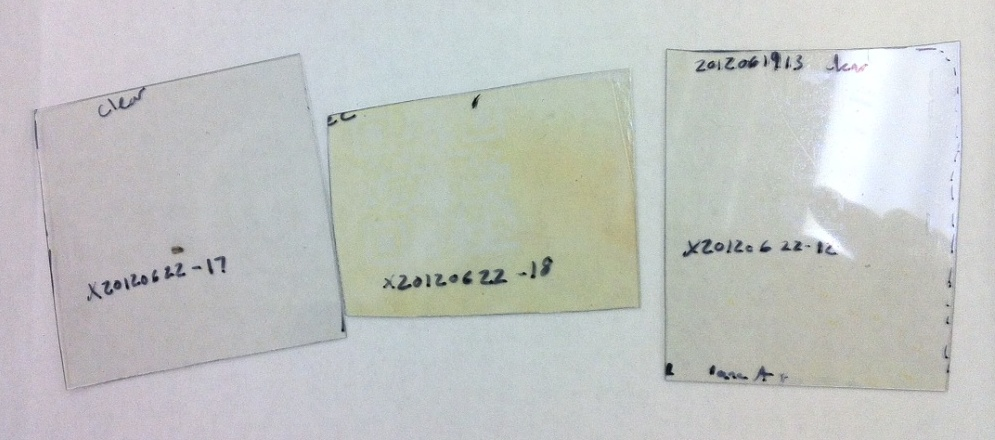 clear
X20120622-17
X20120622-18
2012061913 clear
X20120622-12